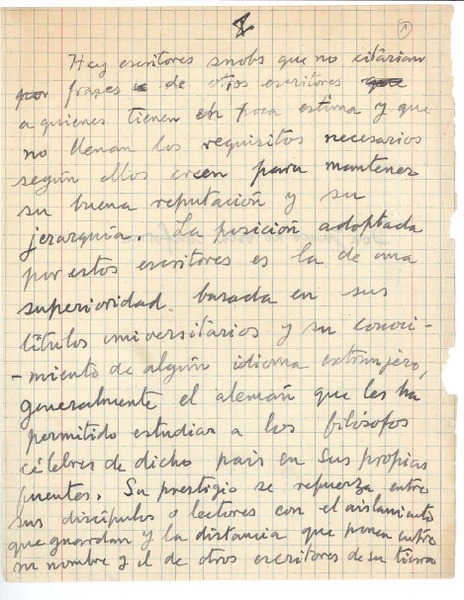 8
1
Hay escritores snobs que no citarian
por frases de otros escritores que
a quienes tienen en poca estima y que
no llenan los requisitos necesarios
según ellos creen para mantener
su buena reputación y su
jerarquía. La posición adoptada
por estos escritores es la de una
superioridad basada en sus
títulos universitarios y su conoci-
-miento de algún idioma extranjero,
generalmente el alemán que les ha
permitido estudiar a los filósofos
célebres de dicho pais en sus propias
fuentes. Su prestigio se refuerza entre
sus discípulos o lectores con el aislamiento
que guardan y la distancia que ponen entre
su nombre y el de otros escritores de su tierra